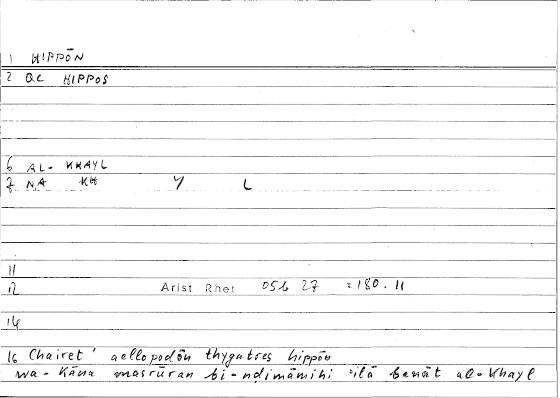 1 HIPPŌN
2 QC HIPPOS
6 AL- KHAYL
7 NA KH Y L
11
12 Arist Rhet 05b 27 =180.11
14
16 Chairet' aellopodōn thygatres hippōn
wa-kāna masrūran bi-nḍimāmihi ilā banāt al-khayl